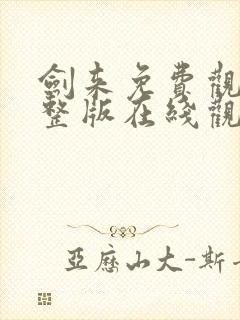 劍来免費觀
整版在綫觀
亞歷山大-斯